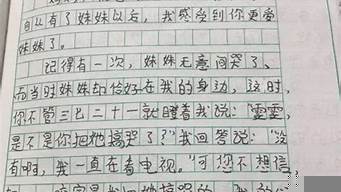 自从有了妹妹以后,我感受到你更爱
妹妹了。
记得有一次,妹妹无意间哭了,
而当时妹妹却恰好在我的身边,这时,
你不管三七二十一就瞪着我说:“雯雯,
是不是你把她搞哭了?”我回答说:“没
有啊,我一直在看电视。”可您不想信